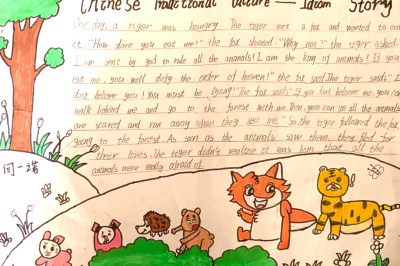 Chinese Traditional Culture — Idiom Story
One day, a tiger was hungry. The tiger met a fox and wanted to eat
it. "How dare you eat me!" the fox shouted. "Why not?" the tiger asked. "
I am sent by god to rule all the animals! I am the king of animals! If you
eat me, you will defy the order of heaven!" the fox said. The tiger said: "I
don't believe you! You must be lying!" The fox said: "If you don't believe me, you can
walk behind me and go to the forest with me. Then, you can see all the animals
are scared and run away when they see me." So, the tiger followed the fox
going to the forest. As soon as the animals saw them, they fled for
their lives. The tiger didn't realize it was him that all the
animals were really afraid of.
闫一诺